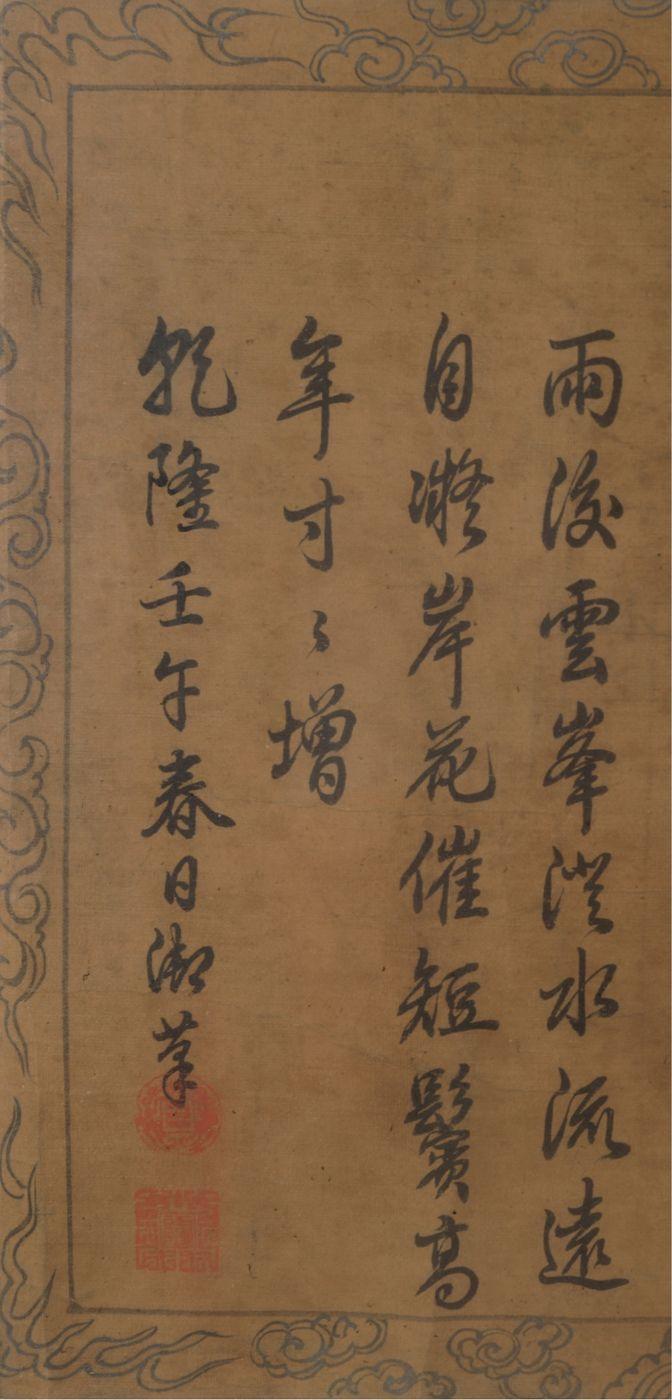 雨後雲峯澄水流遠
自凝岸花催短鬢高
年寸〻增
乾隆壬午春日御筆